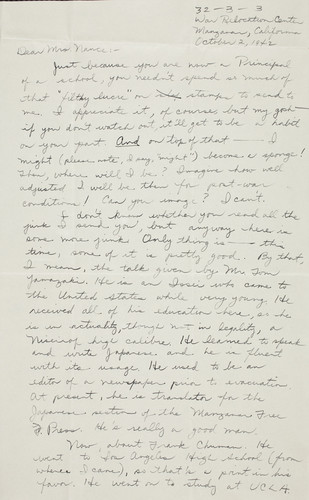 32-3-3
War Relocation Center
Manzanar, California
October 2, 1942
Dear Mrs. Nance:-
Just because you are now a Principal
of a school, you needn't spend so much of
that "filthy lucre" on stamps to send to
me. I appreciate it, of course, but my gosh
if you don't watch out, it'll get to be a habit
on your part. And on top of that — I
might (please note, I say, "might") become a sponge!
Then, where will I be? Imagine how well
adjusted I will be then for post-war
conditions! Can you imagine? I can't.
I don't know whether you read all the
junk I send you, but anyway here is
some more junk. Only thing is — this
time, some of it is pretty good. By that,
I mean, the talk given by Mr. Tom
Yamazaki. He is an Issei who came to
the United States while very young. He
received all of his education here, so he
is in actuality, though not in legality, a
Nisei of high calibre. He learned to speak
and write Japanese and he is fluent
with its usage. He used to be an
editor of a newspaper prior to evacuation.
At present, he is translator for the
Japanese section of the Manzanar Free
Press. He's really a good man.
Now, about Frank Chuman. He
went to Los Angeles High School (from
where I came), so that's a point in his
favor. He went on to study at UCLA.